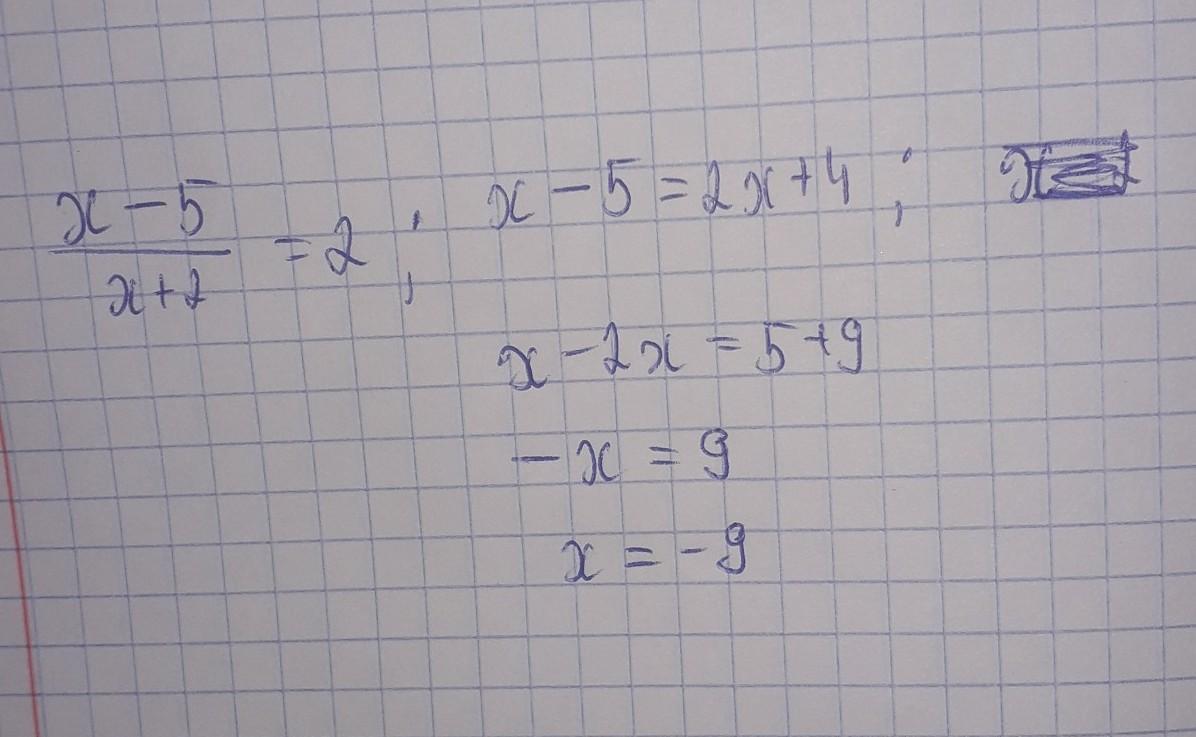 (x-5)/(x+2) = 2; x - 5 = 2x + 4;
x - 2x = 5 + 9
- x = 9
x = - 9